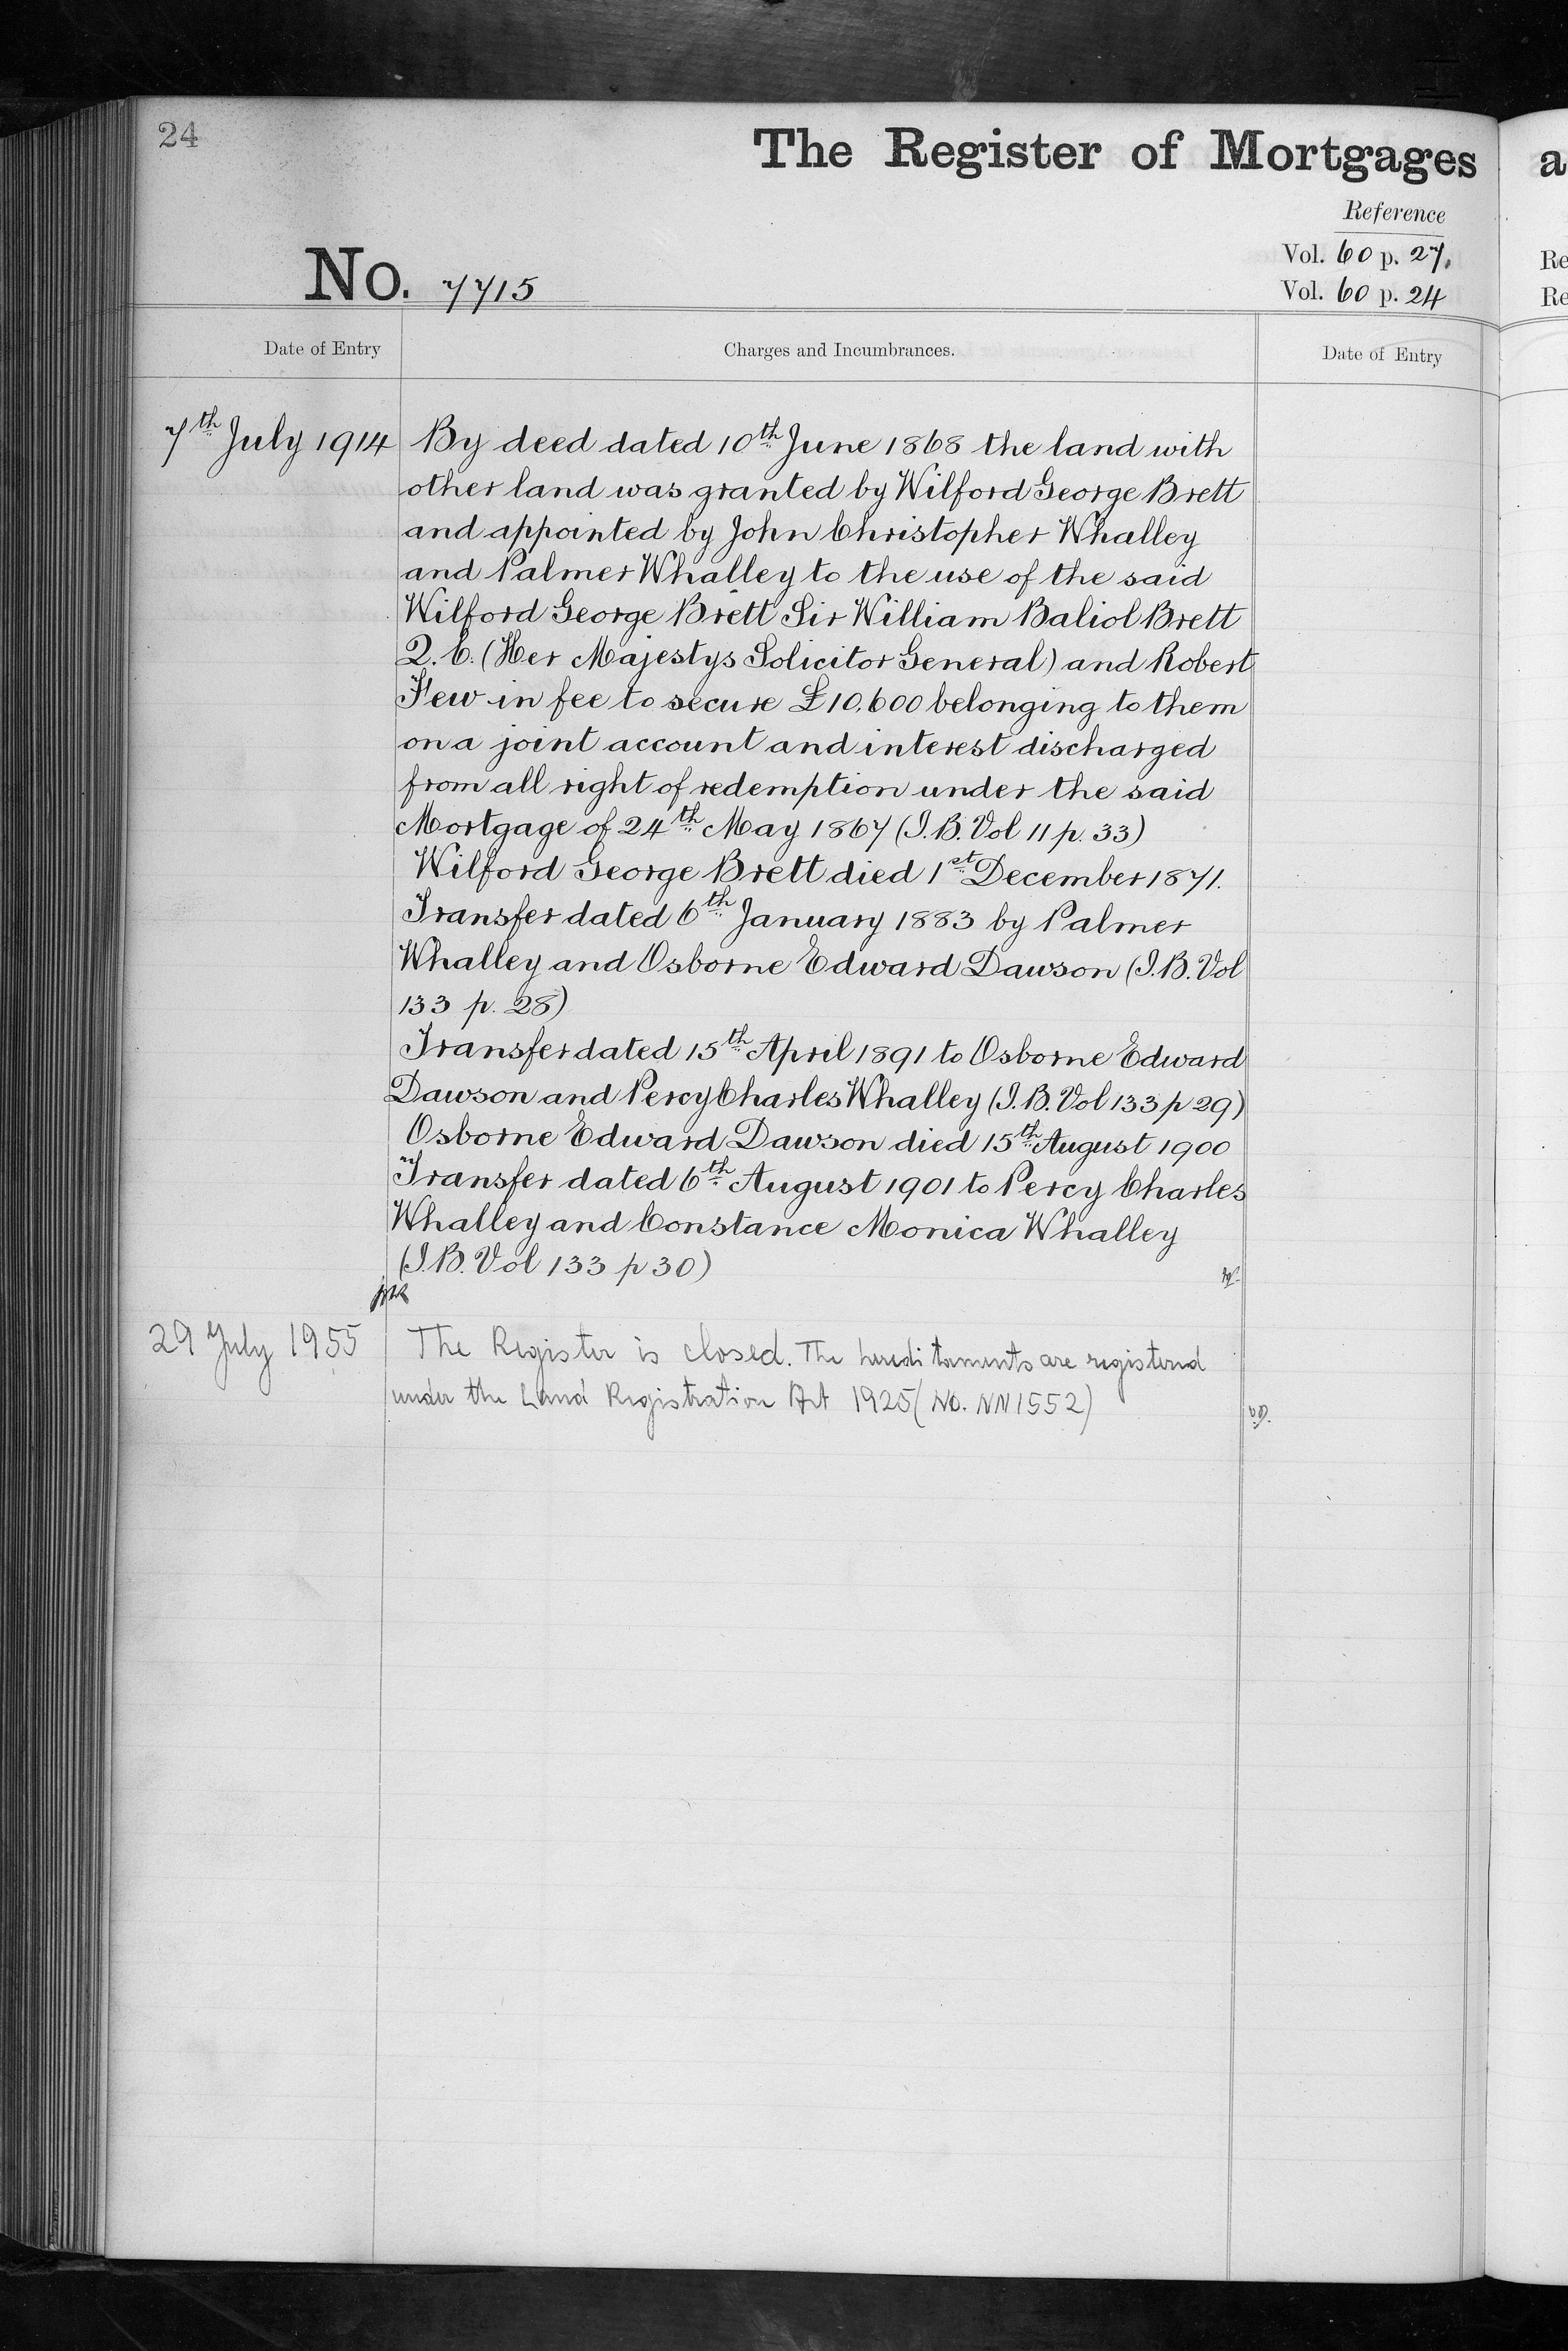 24
The Register of Mortgages a
Reference
Vol. 60 p. 27. Re
No. 7715
Vol. 60 p. 24 Re
Date of Entry Charges and Incumbrances. Date of Entry
7th July 1914 By deed dated 10th June 1868 the land with
other land was granted by Wilford George Brett
and appointed by John Christopher Whalley
and Palmer Whalley to the use of the said
Wilford George Brett Sir William Baliol Brett
Q.C. (Her Majestys Solicitor General) and Robert
Few in fee to secure £10,600 belonging to them
on a joint account and interest discharged
from all right of redemption under the said
Mortgage of 24th May 1867 (I.B. Vol 11 p. 33)
Wilford George Brett died 1st December 1871.
Transfer dated 6th January 1883 by Palmer
Whalley and Osborne Edward Dawson (I.B. Vol
133 p. 28)
Transfer dated 15th April 1891 to Osborne Edward
Dawson and Percy Charles Whalley (I.B. Vol 133 p 29)
Osborne Edward Dawson died 15th August 1900
Transfer dated 6th August 1901 to Percy Charles
Whalley and Constance Monica Whalley
(I.B. Vol 133 p 30)
29 July 1955 The Register is closed. The hereditaments are registered
under the Land Registration Act 1925 (No. NN1552)